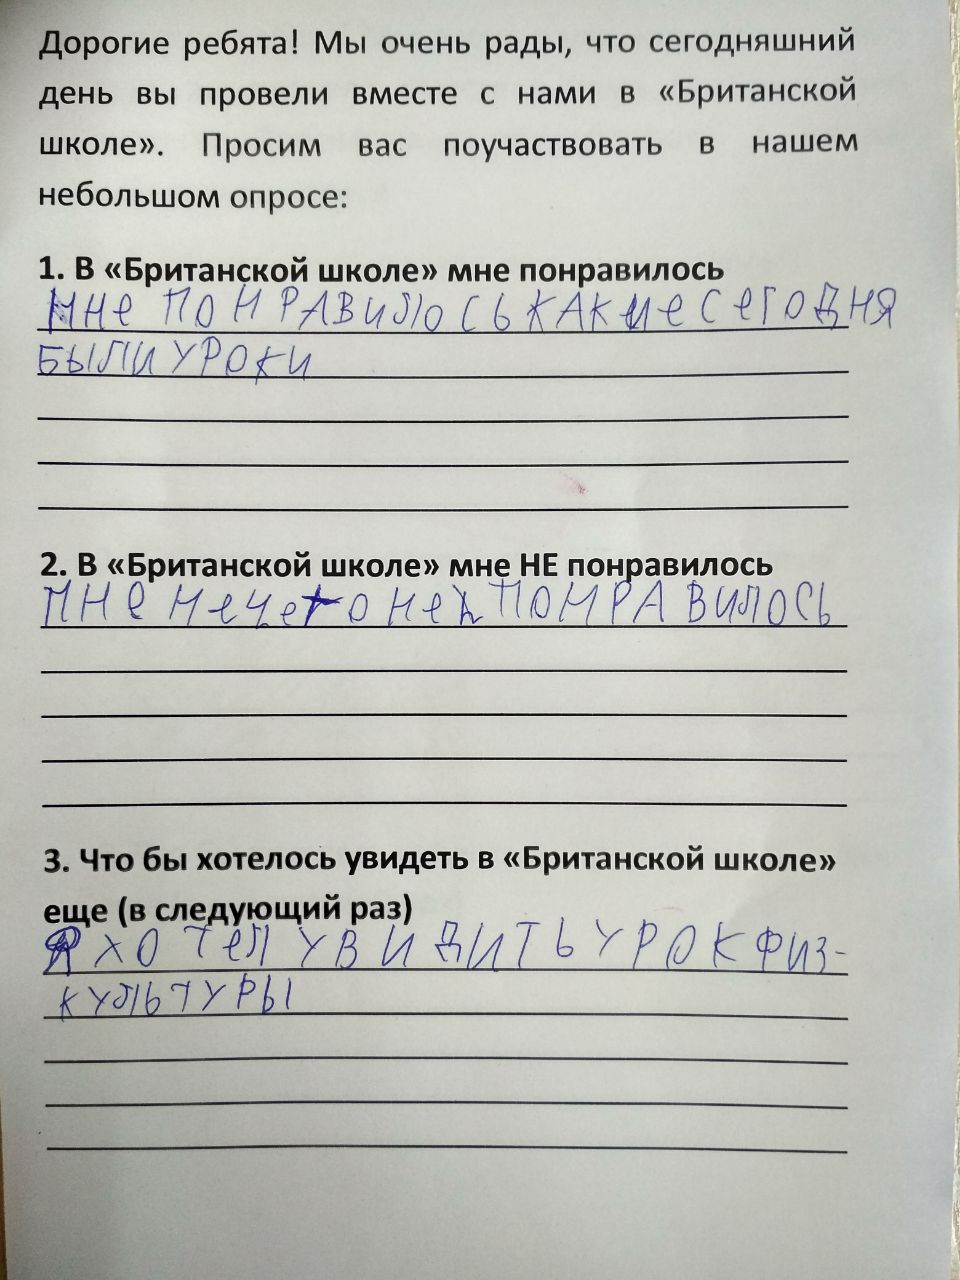 Дорогие ребята! Мы очень рады, что сегодняшний
день вы провели вместе с нами в «Британской
школе». Просим вас поучаствовать в нашем
небольшом опросе:
1. В «Британской школе» мне понравилось
МНЕ ПОНРАВИЛОСЬ КАКИЕ СЕГОДНЯ
БЫЛИ УРОКИ
2. В «Британской школе» мне НЕ понравилось
МНЕ НЕЧЕГО НЕ ПОНРАВИЛОСЬ
3. Что бы хотелось увидеть в «Британской школе»
еще (в следующий раз)
Я ХОТЕЛ УВИДИТЬ УРОК ФИЗ-
КУЛЬТУРЫ